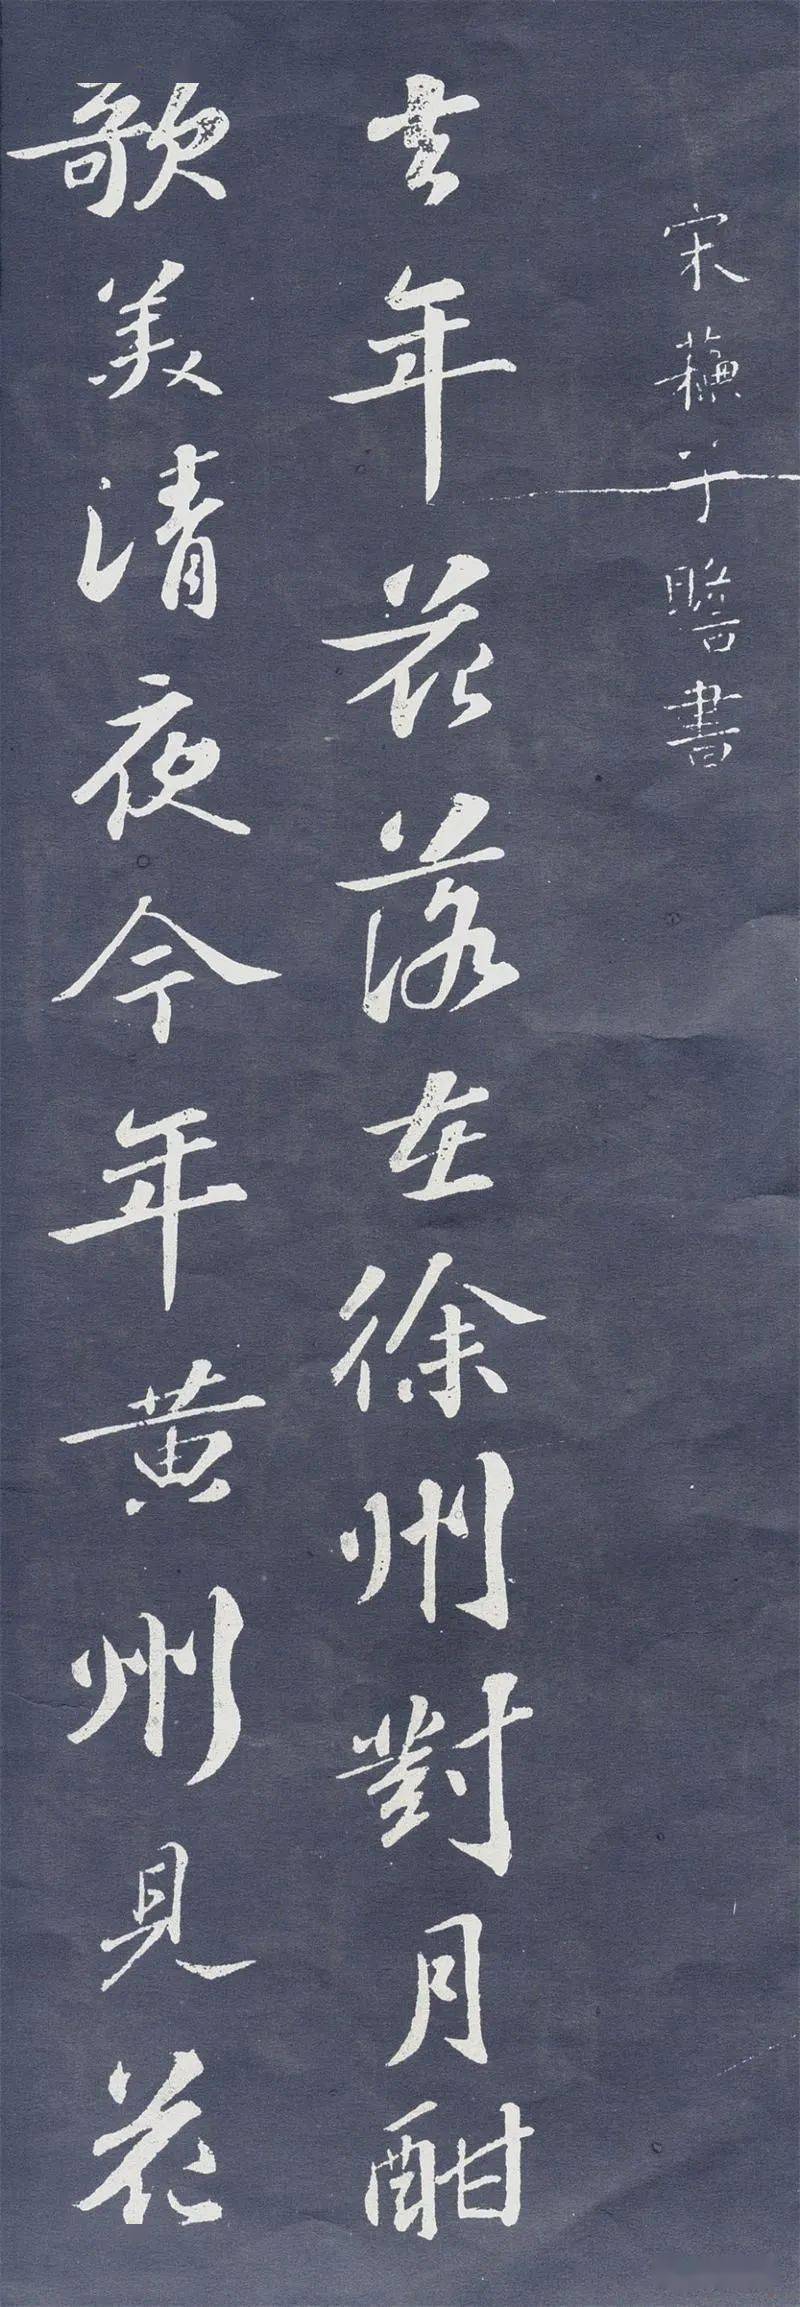 宋蘇子瞻書
去年花落在徐州對月酣
歌美清夜今年黃州見花